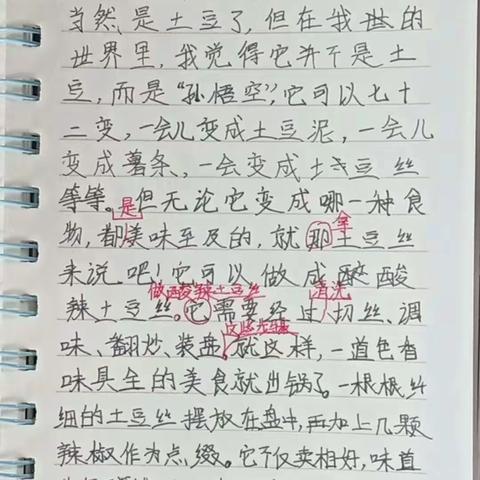 当然,是土豆了,但在我的
世界里,我觉得它并不是土
豆,而是“孙悟空”,它可以七十
二变,一会儿变成土豆泥,一会儿
变成薯条、一会变成土豆丝
等等。但无论它变成哪一种食
是
物,都美味至及的,就那土豆丝
拿
来说吧!它可以做成酸
辣土豆丝。它需要经过切丝、调
做酸辣土豆丝
清洗
味、翻炒、装盘,就这样,一道色香
味具全的美食就出锅了。一根根纤
细的土豆丝摆放在盘中,再加上几颗
辣椒作为点缀。它不仅卖相好,味道